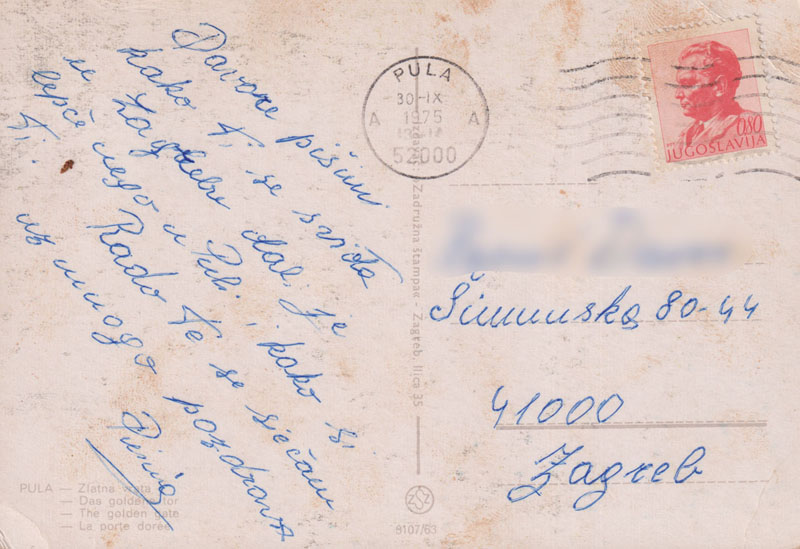 Davore piši mi
kako ti se sviđa
u Zagrebu dali je
lepče nego u Puli, i kako si
ti. Rado te se sjećam
uz mnogo pozdrava
PULA
30-IX
1975
A A
52000
0,80
JUGOSLAVIJA
Zadružna štampa - Zagreb Ilica 35
80-44
41000
Zagreb
PULA — Zlatna vrata
— Das goldene Tor
— The golden gate
— La porte dorée
9107/63